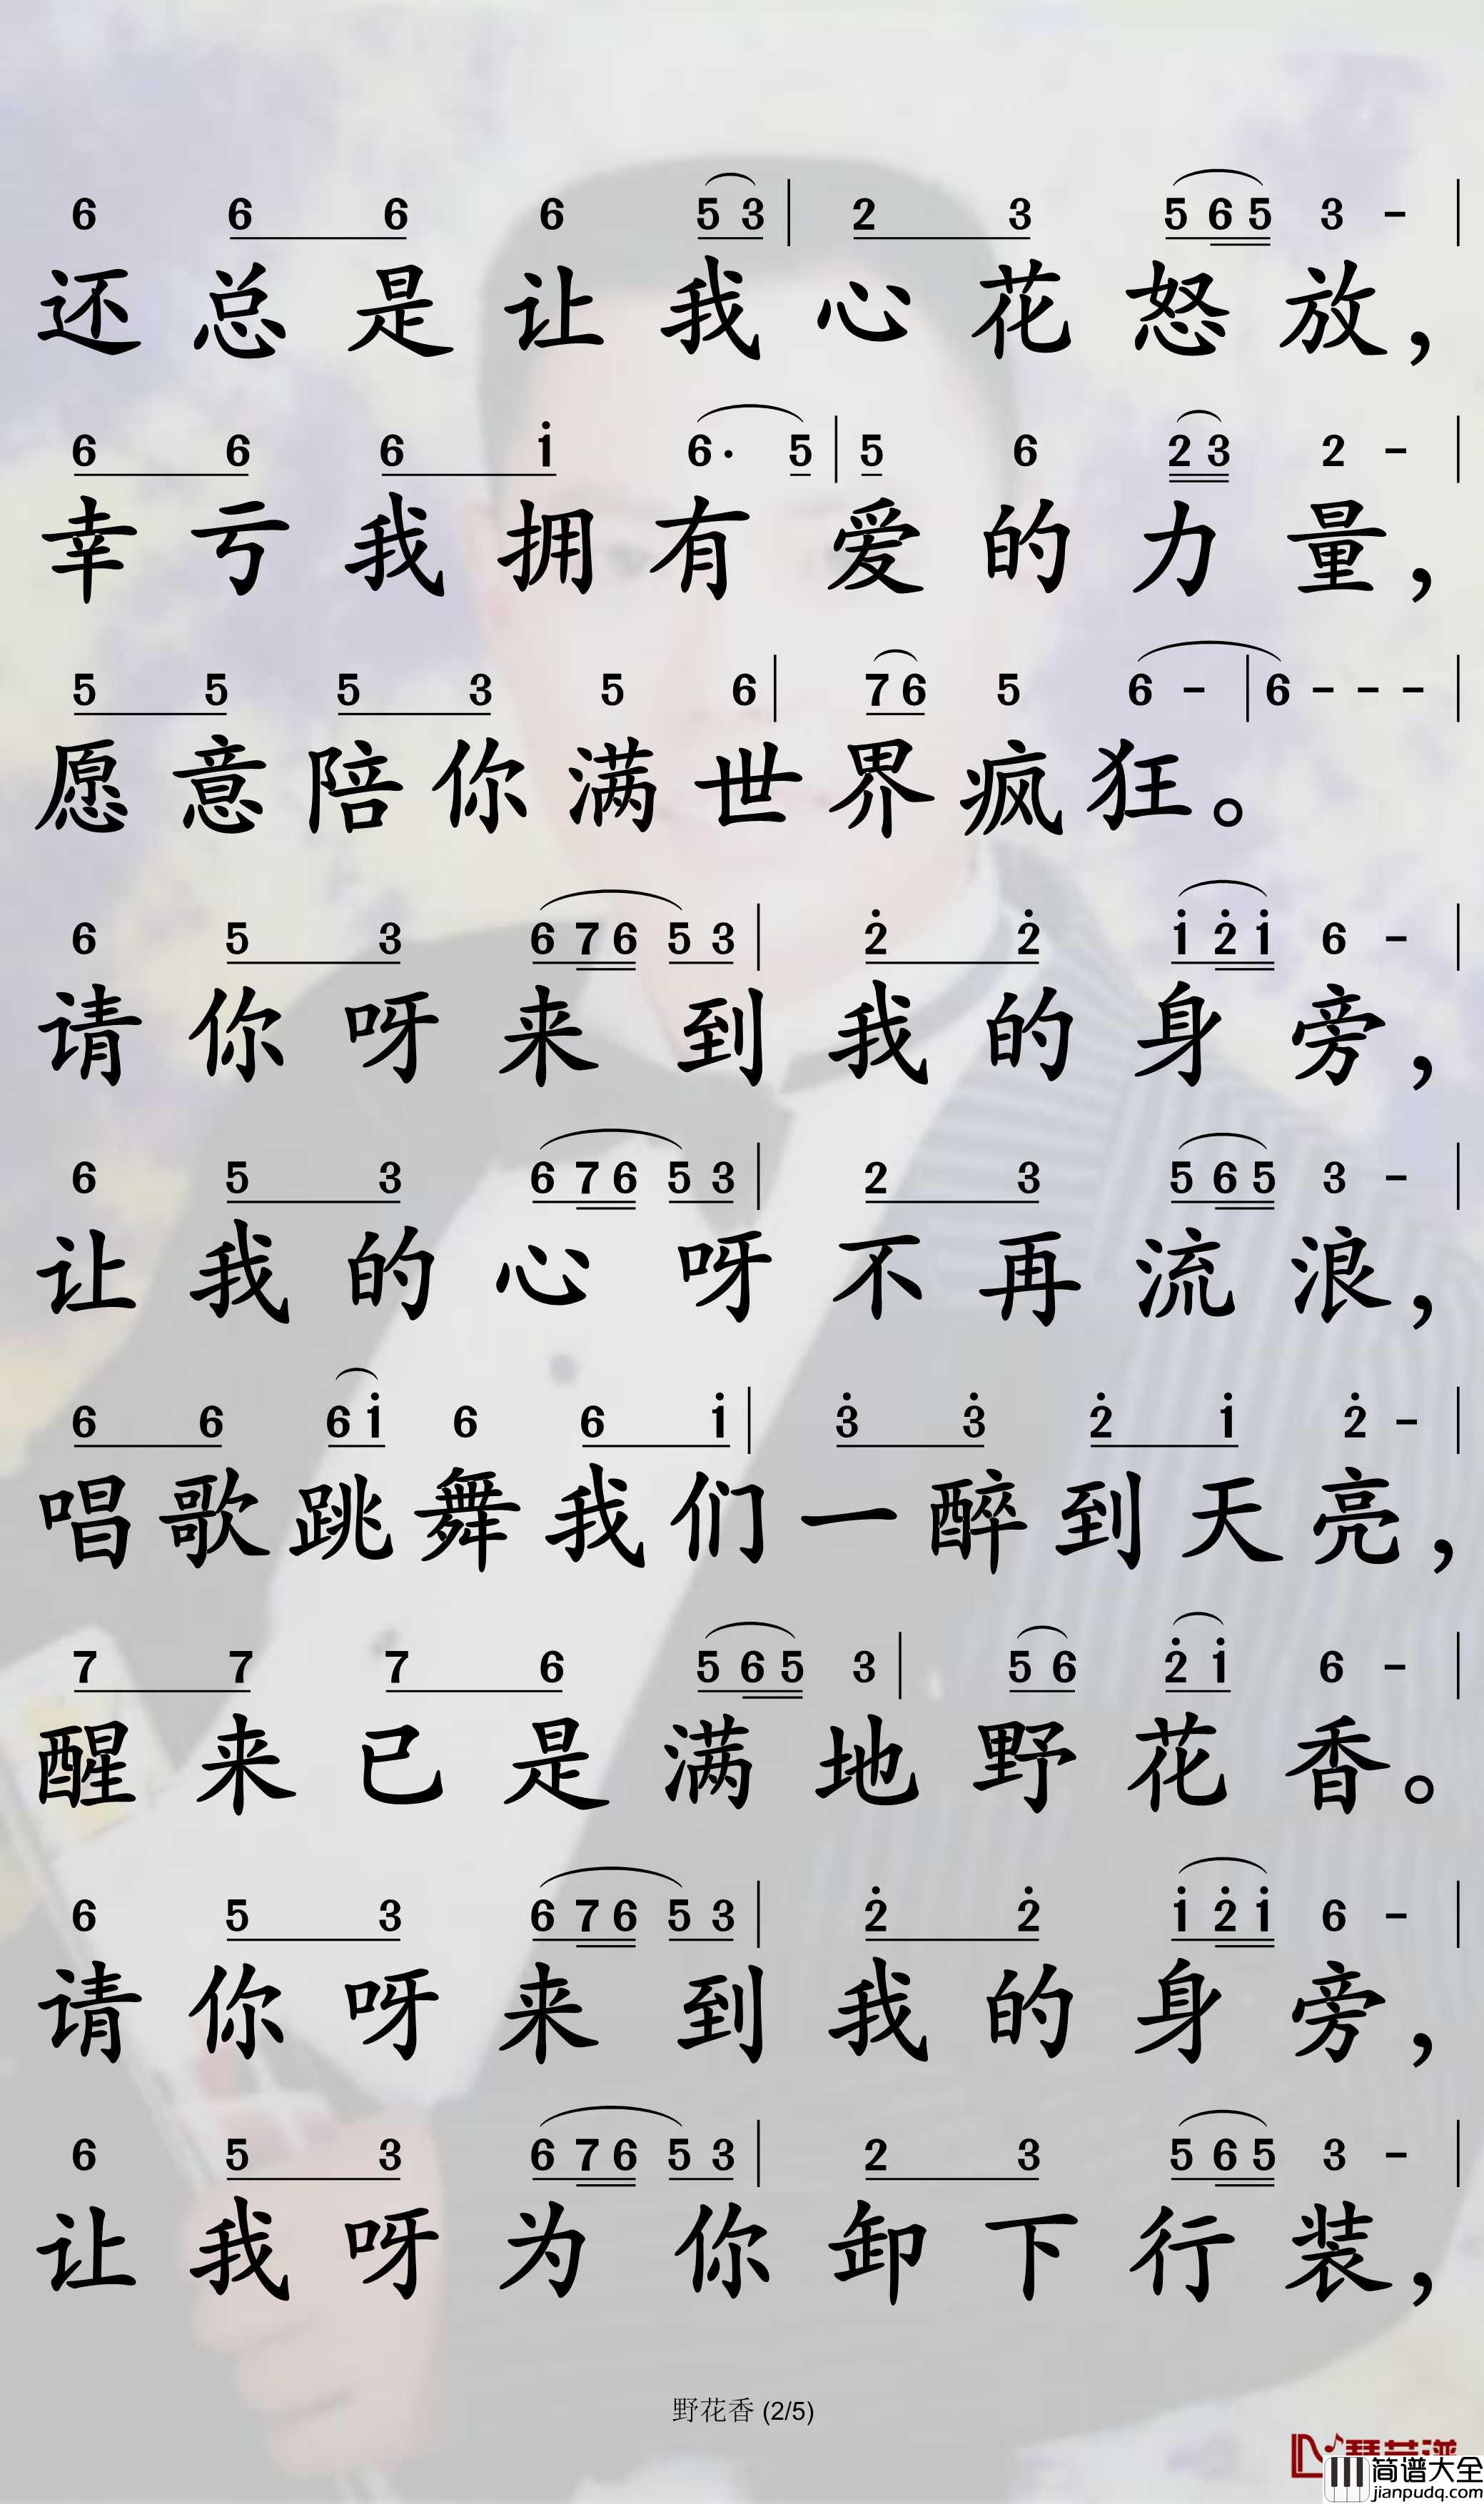 6 6 6 6 5 3 | 2 3 5 6 5 3 - |
还总是让我心花怒放，
6 6 6 i 6· 5 | 5 6 2 3 2 - |
幸亏我拥有爱的力量，
5 5 5 3 5 6 | 7 6 5 6 - | 6 - - - |
愿意陪你满世界疯狂。
6 5 3 6 7 6 5 3 | 2̇ 2̇ i 2̇ i 6 - |
请你呀来到我的身旁，
6 5 3 6 7 6 5 3 | 2 3 5 6 5 3 - |
让我的心呀不再流浪，
6 6 6 i 6 6 i | 3̇ 3̇ 2̇ i 2̇ - |
唱歌跳舞我们一醉到天亮，
7 7 7 6 5 6 5 3 | 5 6 2̇ i 6 - |
醒来已是满地野花香。
6 5 3 6 7 6 5 3 | 2̇ 2̇ i 2̇ i 6 - |
请你呀来到我的身旁，
6 5 3 6 7 6 5 3 | 2 3 5 6 5 3 - |
让我呀为你卸下行装，
野花香 (2/5)
简谱大全
jianpudq.com